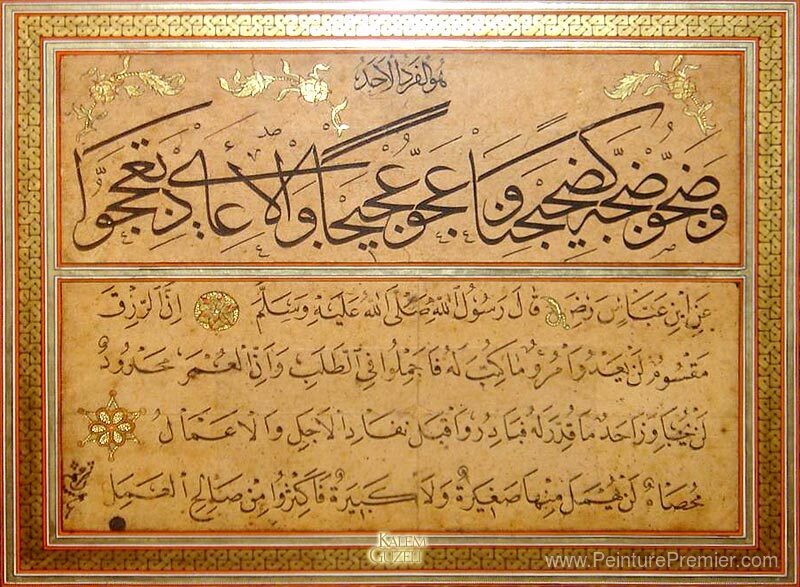 هو الفرد الاحد
عَنِ ابْنِ عَبَّاسٍ رَضِ قَالَ رَسُولُ اللهِ صَلَّى اللهُ عَلَيْهِ وَسَلَّمَ اِنَّ الرِّزْقَ
مَقْسُومٌ لَنْ يَعْدُوَ امْرُؤٌ مَا كُتِبَ لَهُ فَاَجْمِلُوا فِي الطَّلَبِ وَاِنَّ الْعُمَرَ مَحْدُودٌ
لَنْ يُجَاوِزَ اَحَدٌ مَا قُدِّرَ لَهُ فَبَادِرُوا قَبْلَ نَفَادِ الْاَجَلِ وَالْاَعْمَالُ
مُحْصَاةٌ لَنْ يُهْمَلَ مِنْهَا صَغِيرَةٌ وَلَا كَبِيرَةٌ فَاَكْثِرُوا مِنْ صَالِحِ الْعَمَلِ
KALEM
GUZELI
www.PeinturePremier.com